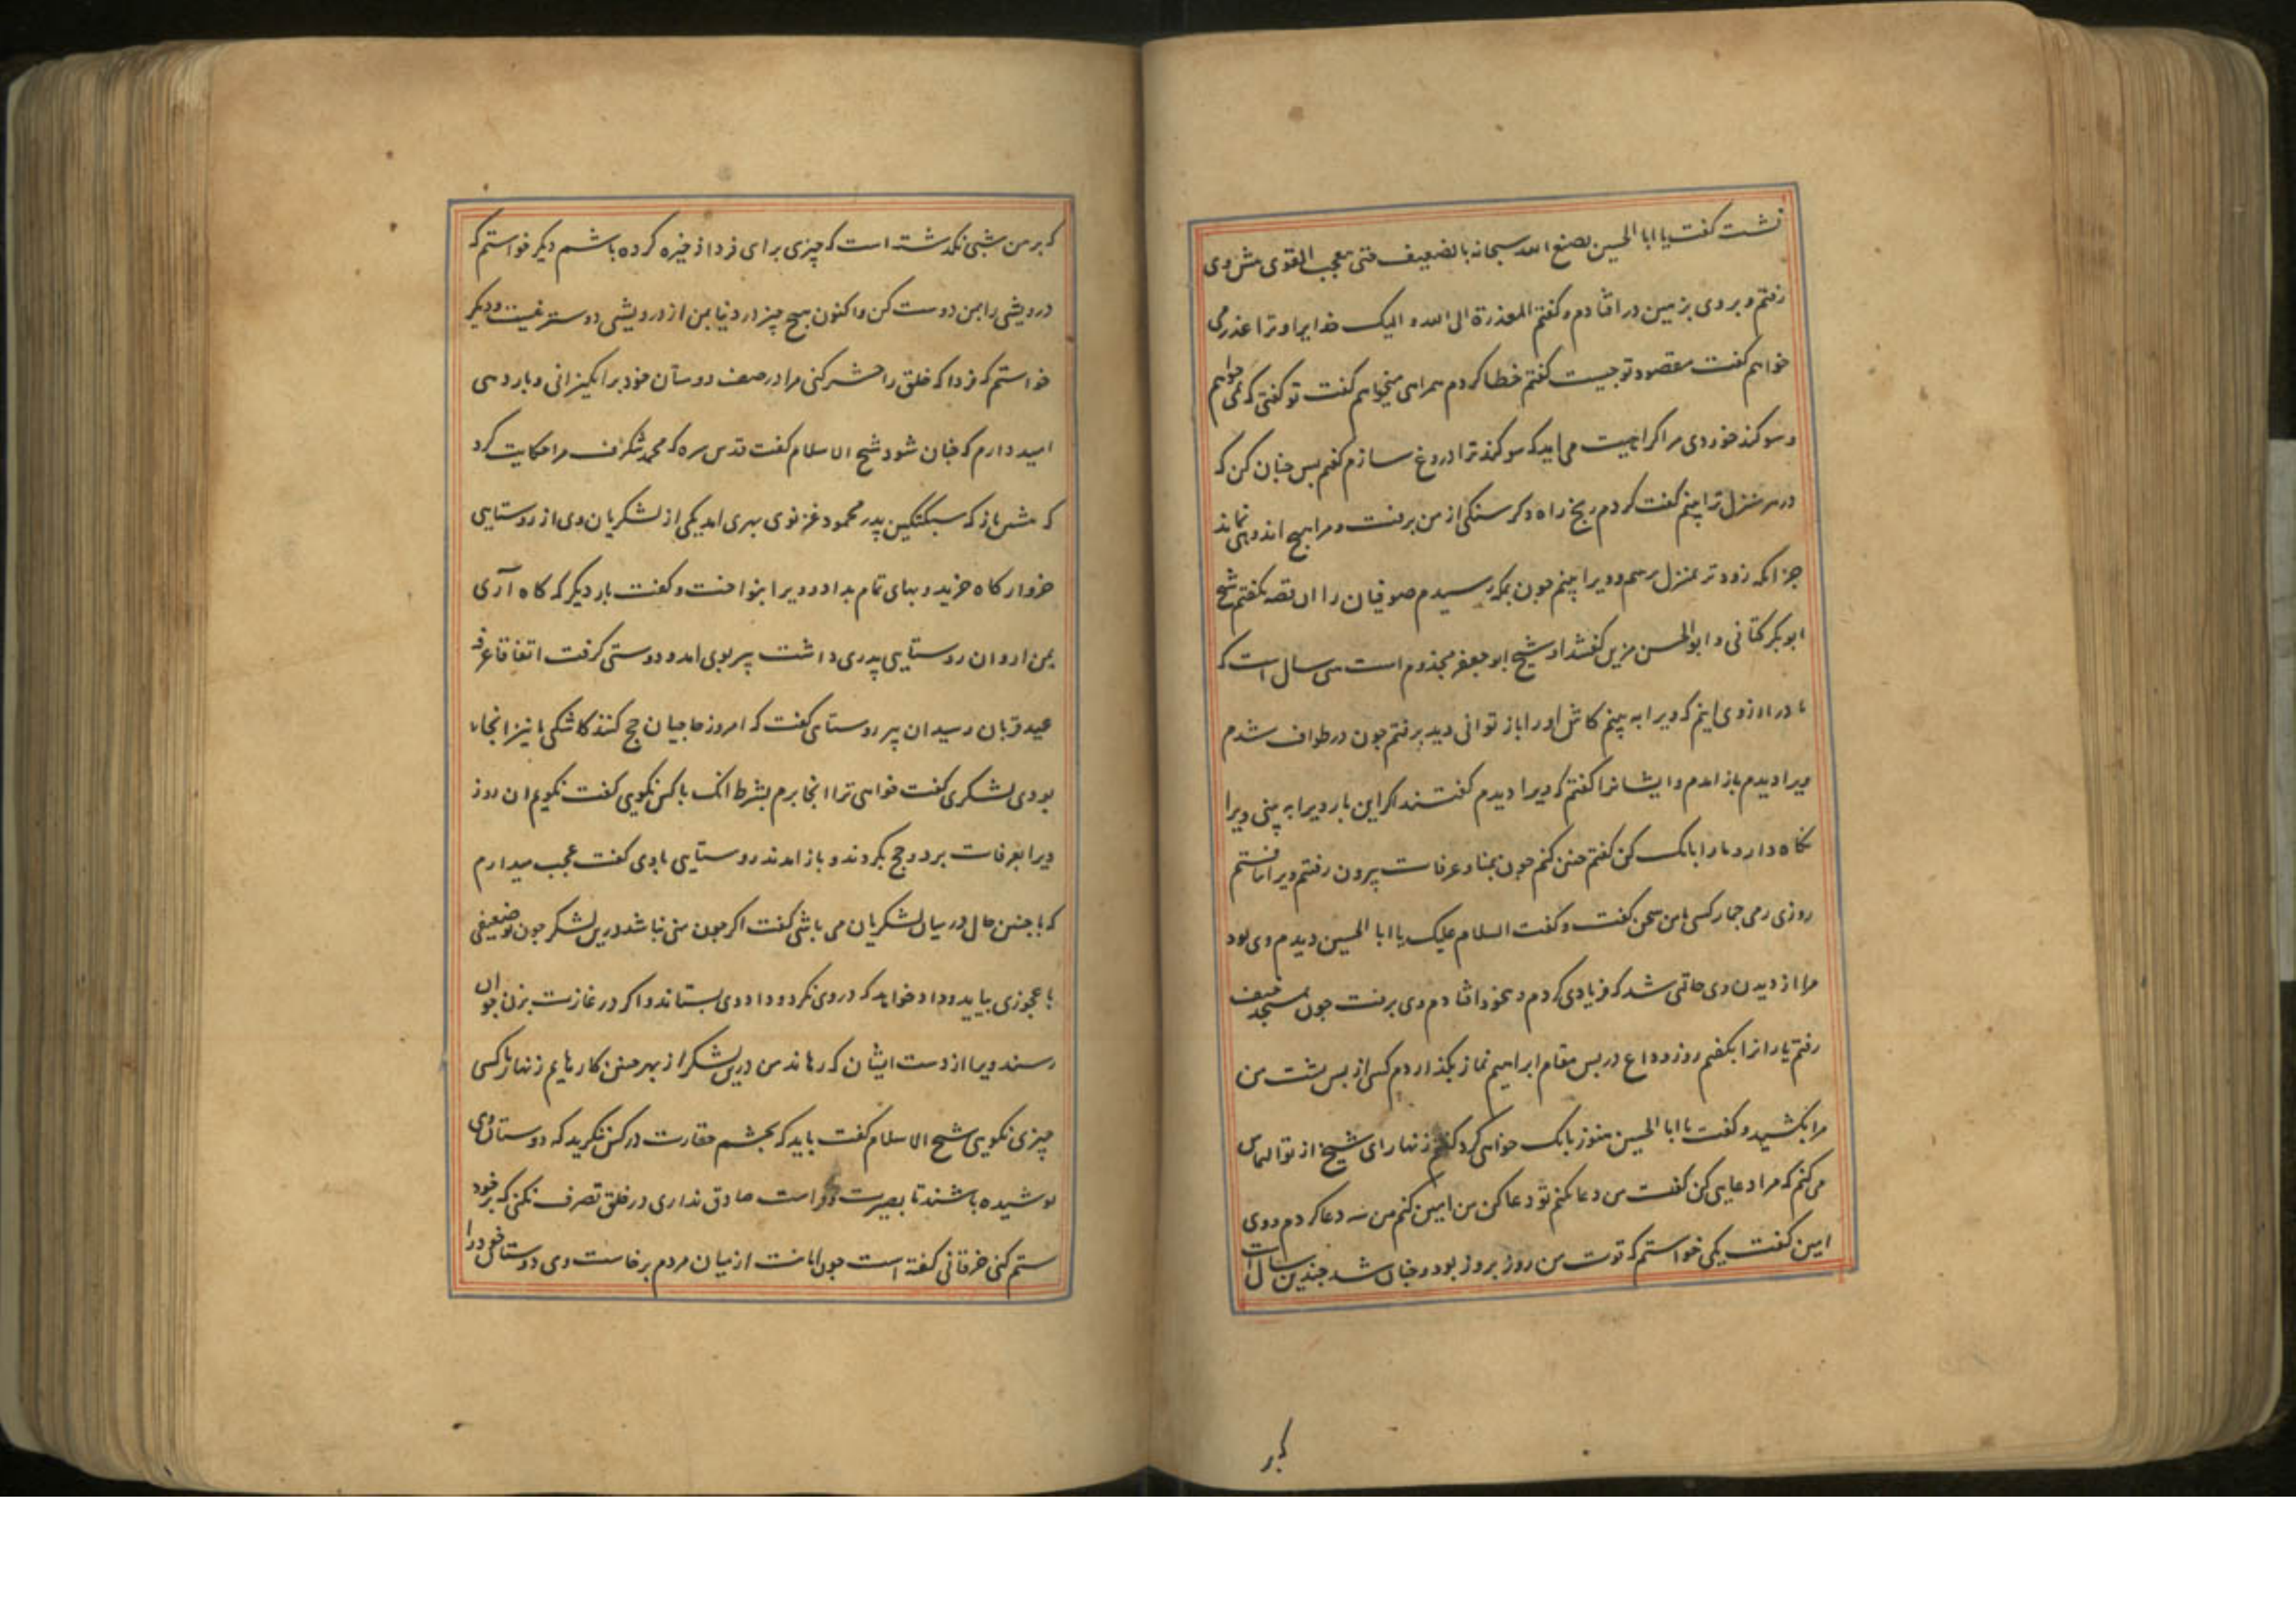 نشست گفت یا ابا الحسین یصنع الله سبحانه بالضعیف حتی یتعجب القوی پیش وی
رفتم و بروی بزمین درافتادم و گفتم المعذرة الی الله و الیک خدایرا و ترا عذر می
خواهم گفت مقصود تو چیست گفتم خطا کردم همراهی میخواهم گفت تو گفتی که نمی خواهم
و سوکند خوردی مرا کراهیت می اید که سوکند ترا دروغ سازم گفتم پس چنان کن که
در هر منزل ترا بینم گفت کردم رنج راه و کرسنکی از من برفت و مرا هیچ اندوهی نماند
جز انکه زودتر بمنزل برسم و ویرا بینم چون بمکه رسیدم صوفیان را ان قصه بگفتم شیخ
ابو بکر کتانی و ابو الحسن مزین گفتند او شیخ ابو جعفر مجذوم است سی سال است که
ما در ارزوی اینم که ویرا به بینم کاش او را باز توانی دید برفتم چون در طواف شدم
ویرا دیدم باز امدم و ایشانرا گفتم که ویرا دیدم گفتند اکر این بار ویرا به بینی ویرا
نکاه دار و ما را بانک کن گفتم چنین کنم چون بمنا و عرفات بیرون رفتم ویرا نیافتم
روزی رمی جمار کسی با من سخن گفت و گفت السلام علیک یا ابا الحسین دیدم وی بود
مرا از دیدن وی حالتی شد که فریادی کردم و بیخود افتادم وی برفت چون بمسجد خیف
رفتم یارانرا بگفتم روز وداع در پس مقام ابراهیم نماز بگذاردم کسی از پس پشت من
مرا بکشید و گفت یا ابا الحسین هنوز بانک خواهی کرد گفتم زنهار ای شیخ از تو التماس
می کنم که مرا دعایی کن گفت من دعا نکنم تو دعا کن من امین کنم من سه دعا کردم و وی
امین گفت یکی خواستم که قوت من روز بروز بود و چنان شد چندین سال است
که بر
که بر من شبی نکذشته است که چیزی برای فردا ذخیره کرده باشم دیگر خواستم که
درویشی را بمن دوست کن و اکنون هیچ چیز در دنیا بمن از درویشی دوستر نیست و دیکر
خواستم که فردا که خلق را حشر کنی مرا در صف دوستان خود برانکیزانی و بار دهی
امید دارم که چنان شود شیخ الاسلام گفت قدس سره که محمد شکرف مرا حکایت کرد
که پیش باز که سبکتکین پدر محمود غزنوی بهری امد یکی از لشکریان وی از روستایی
خروار کاه خرید و بهای تمام بداد و ویرا بنواخت و گفت بار دیکر که کاه آری
بمن ار و ان روستایی پدری داشت پیر بوی امد و دوستی کرفت اتفاقا عرفه
عید قربان رسید ان پیر روستایی گفت که امروز حاجیان حج کنند کاشکی ما نیز انجا
بودی لشکری گفت خواهی ترا انجا برم بشرط انک با کس نگویی گفت نگویم ان روز
ویرا بعرفات برد و حج بکردند و باز امدند روستایی با وی گفت عجب میدارم
که با چنین حال در میان لشکریان می باشی گفت اگر چون منی نباشد درین لشکر چون ضعیفی
یا عجوزی بیاید و داد خواهد که در وی نکرد و داد وی بستاند و اکر در غارت بزن جوان
رسند ویرا از دست ایشان که رهاند من درین لشکر از بهر چنین کارهایم زنهار با کسی
چیزی نکویی شیخ الاسلام گفت باید که بچشم حقارت در کس ننگرید که دوستان وی
پوشیده باشند تا بصیرت و فراست صادق نداری در خلق تصرف نکنی که بر خود
ستم کنی خرقانی گفته است چون امانت از میان مردم برخاست وی دوستان خود را